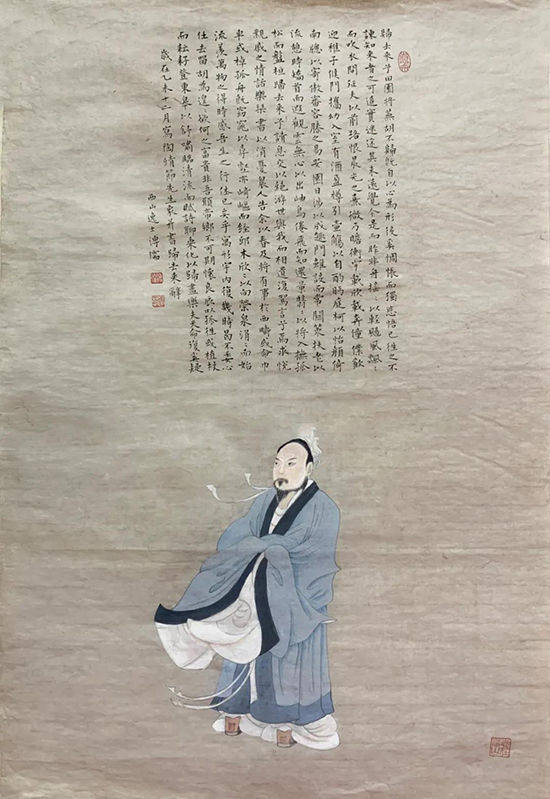 歸去來兮田園將蕪胡不歸既自以心為形役奚惆悵而獨悲悟已往之不
諫知來者之可追實迷途其未遠覺今是而昨非舟搖々以輕颺風飄々
而吹衣問征夫以前路恨晨光之熹微乃瞻衡宇載欣載奔僮僕歡
迎稚子候門攜幼入室有酒盈樽引壺觴以自酌眄庭柯以怡顏倚
南牕以寄傲審容膝之易安園日涉以成趣門雖設而常關策扶老以
流憩時矯首而遐觀雲無心以出岫鳥倦飛而知還景翳々以將入撫孤
松而盤桓歸去來兮請息交以絕游世與我而相遺復駕言兮焉求悅
親戚之情話樂琴書以消憂農人告余以春及將有事於西疇或命巾
車或棹孤舟既窈窕以尋壑亦崎嶇而經邱木欣々以向榮泉涓々而始
流羨萬物之得時感吾生之行休已矣乎寓形宇內復幾時曷不委心
任去留胡為遑々欲何之富貴非吾願帝鄉不可期懷良辰以孤往或植杖
而耘耔登東皋以舒嘯臨清流而賦詩聊乘化以歸盡樂夫天命復奚疑
歲在乙未十一月寫陶靖節先生象并書歸去來辭
西山逸士溥儒